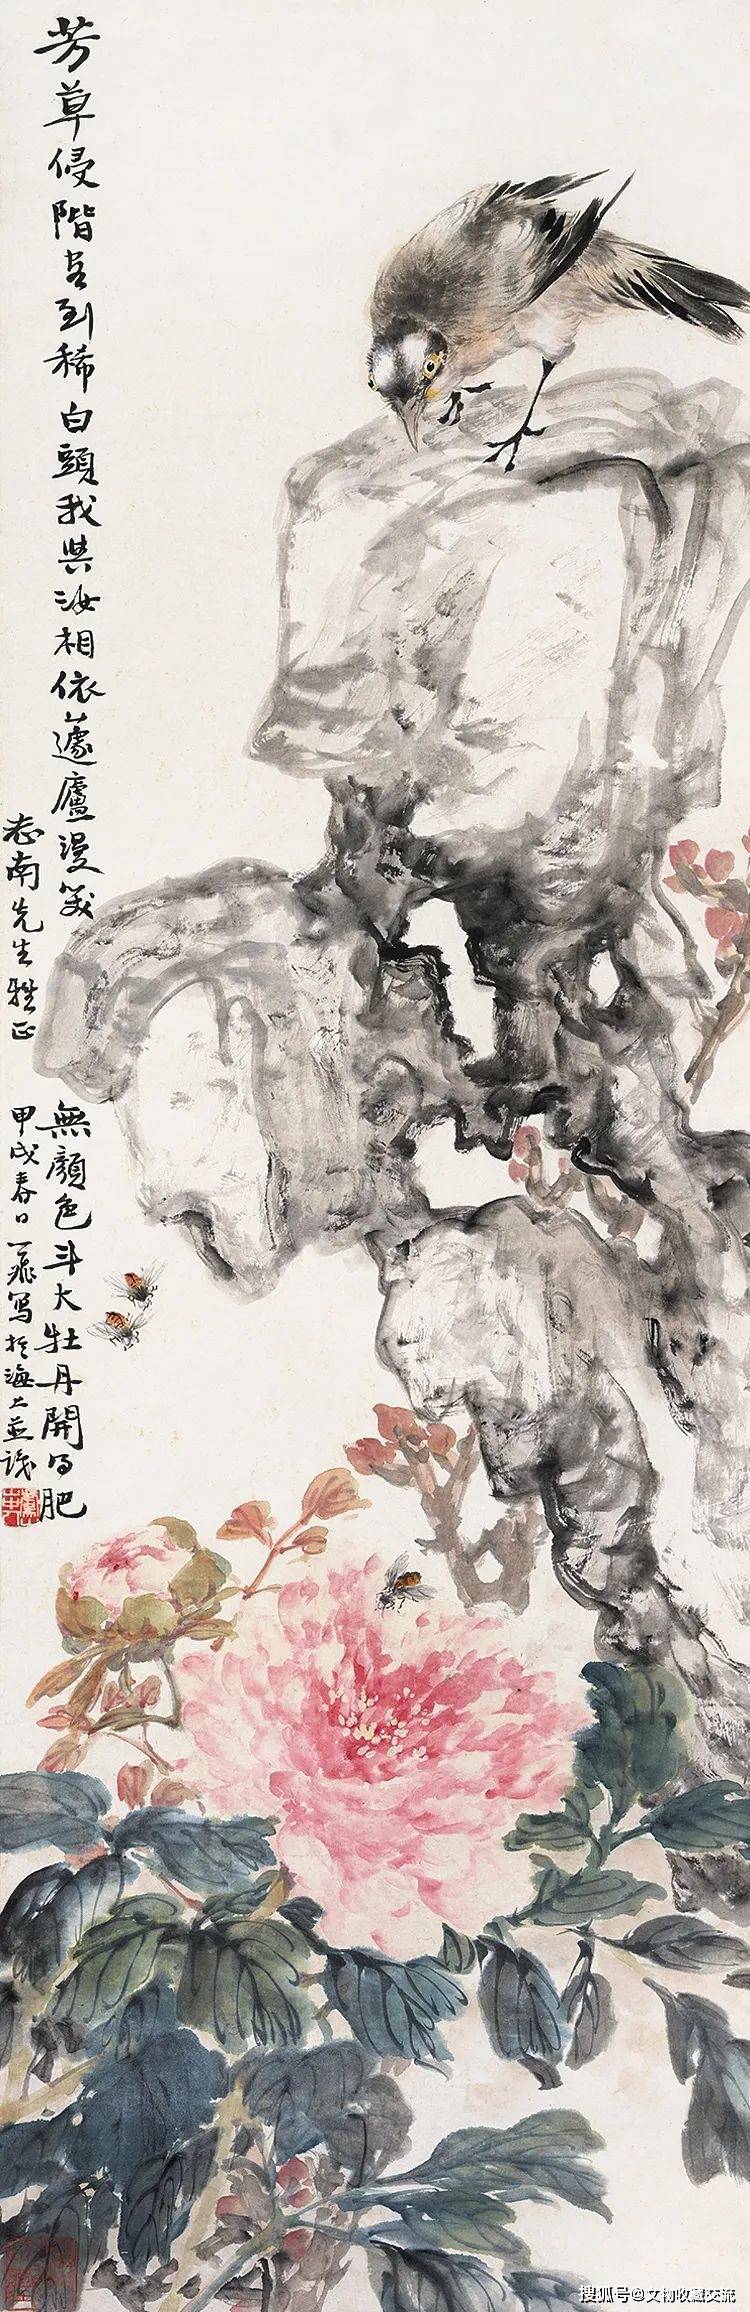 芳草侵階客到稀白頭我與汝相依蘧廬漫笑
無顏色斗大牡丹開得肥
志南先生雅正
甲戌春日一飛寫於海上並識
搜狐号@文物收藏交流